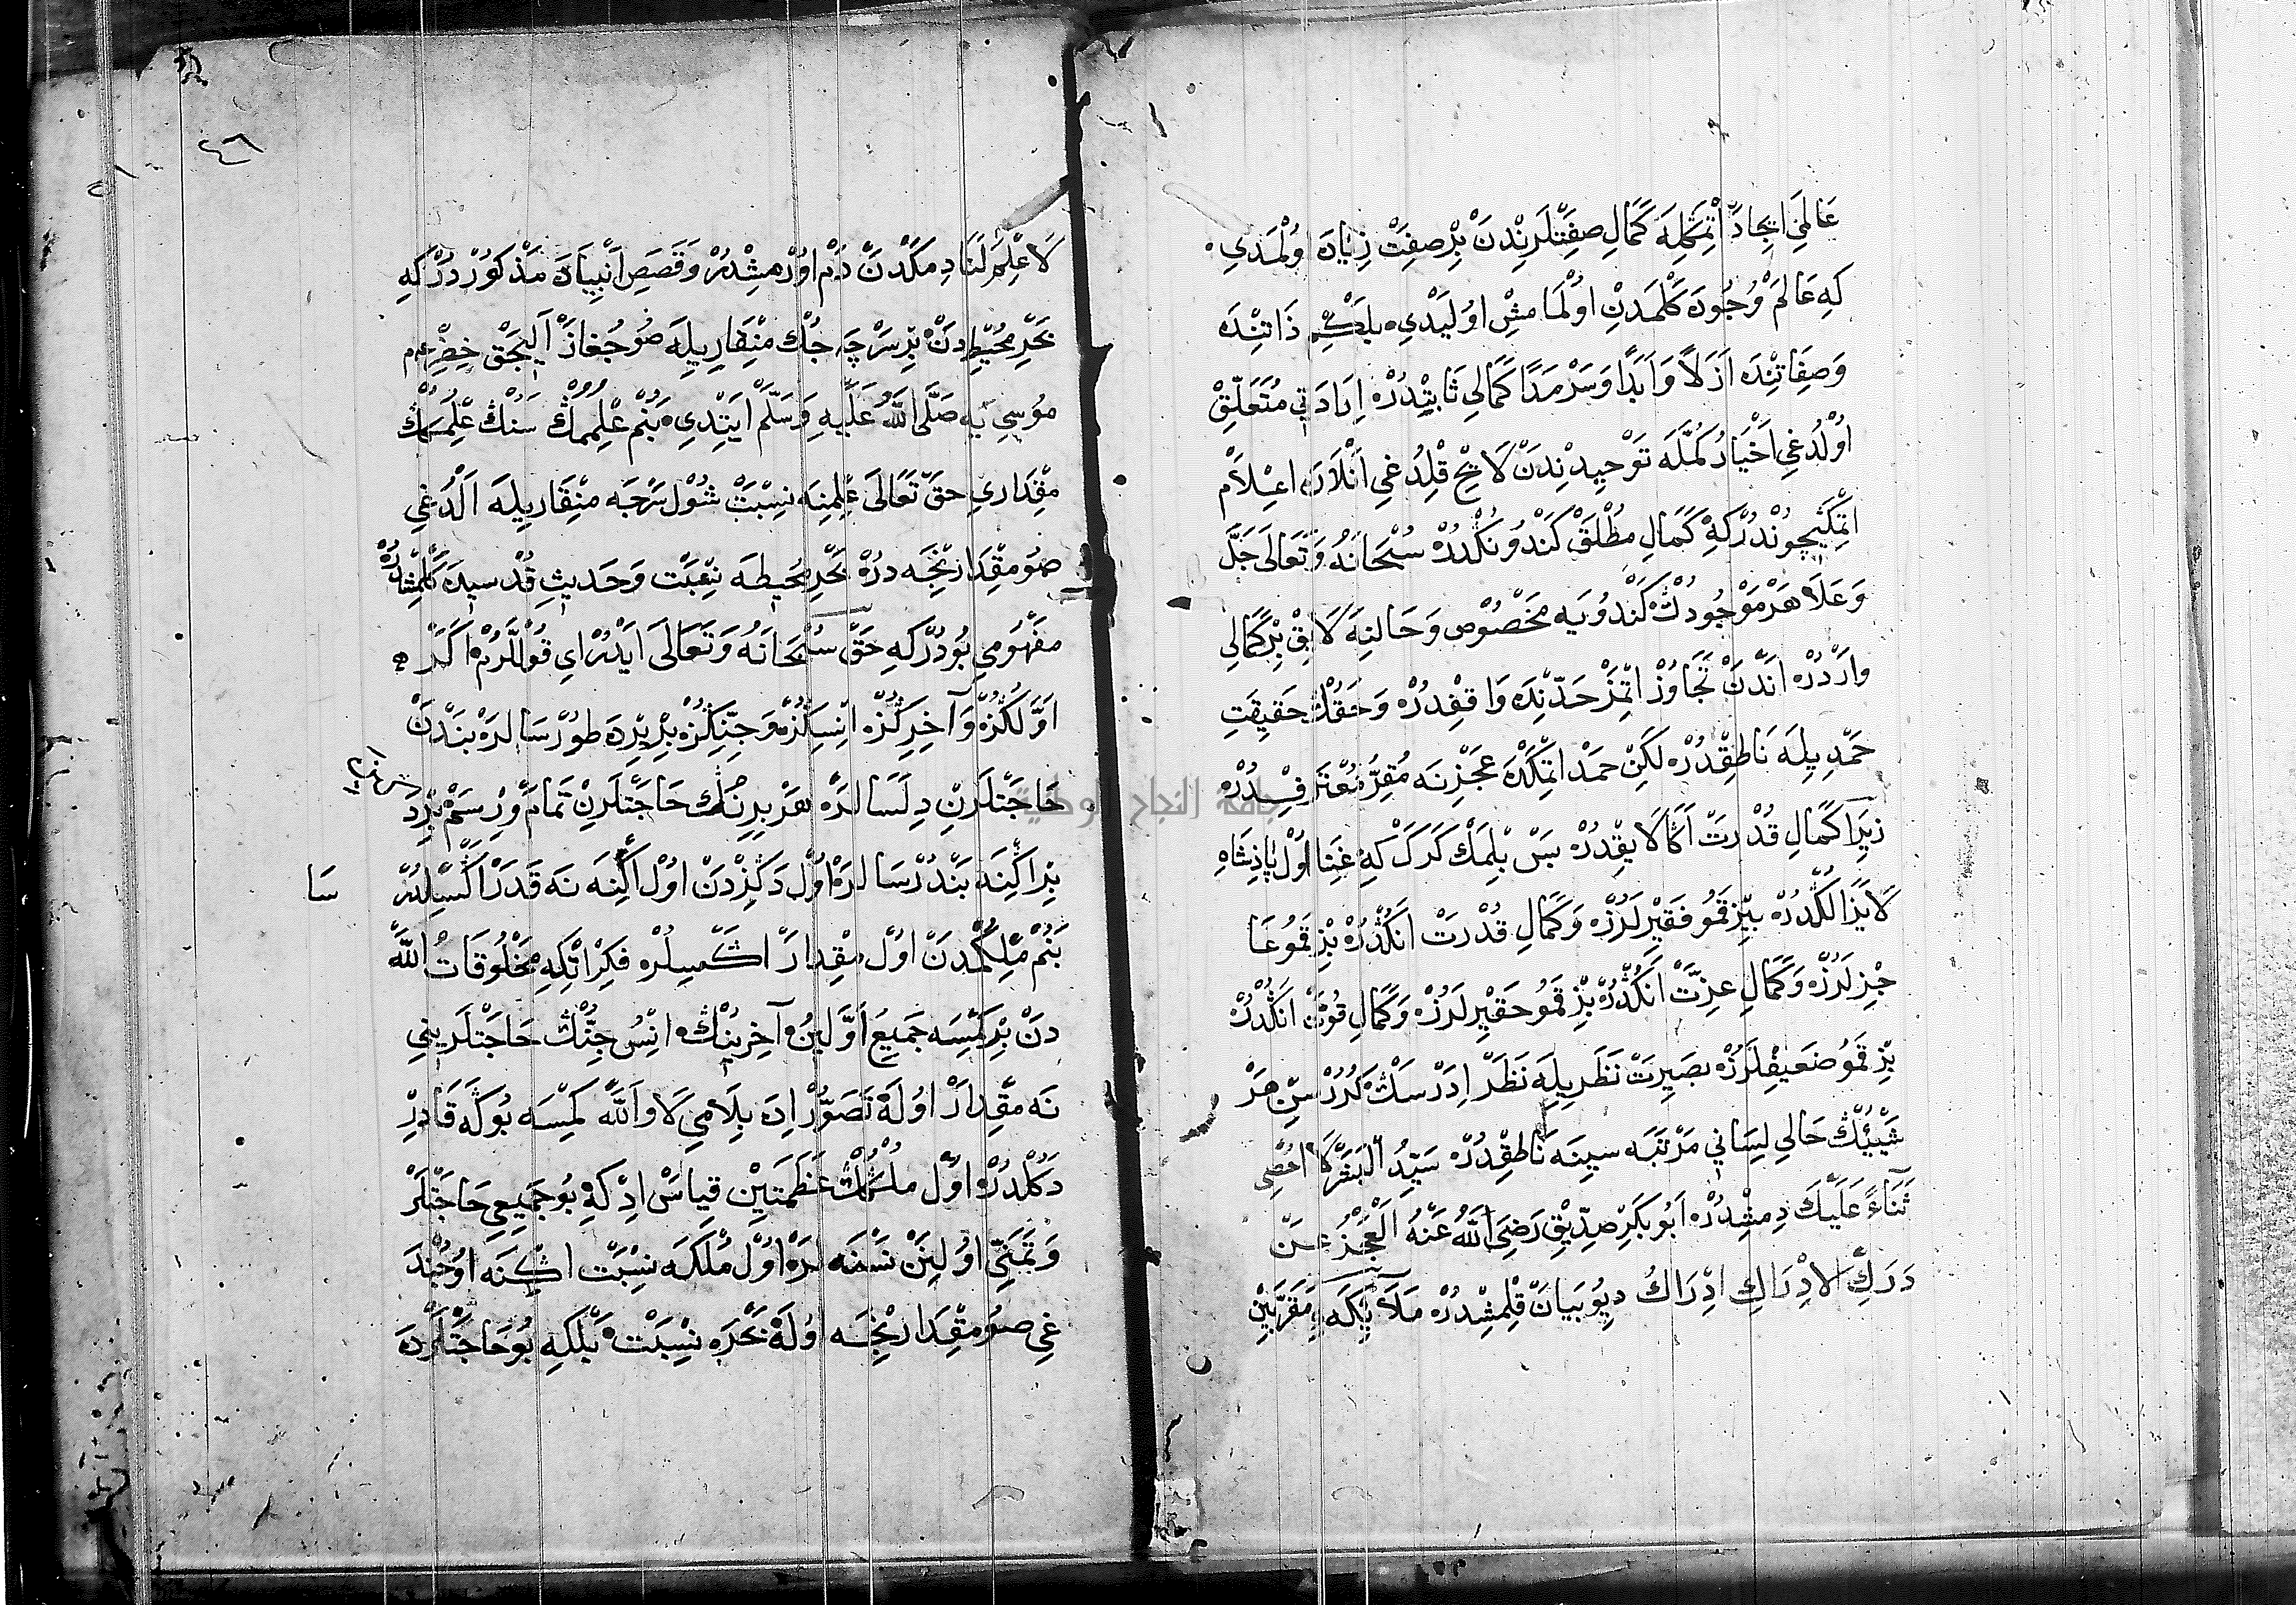 عَالَمِ اِيجَادْ اتْمَكْلِه كَمَالِ صِفَتْلَرِنْدَنْ بِرْ صِفَتْ زِيَادَه اوُلْمَدِي
كِه عَالَمْ وُجُودَه كَلْمَدِنْ اوُلْمَامِشْ اوُلَيْدِي بَلْكِمْ ذَاتِنْدَه
وَصِفَاتِنْدَه اَزَلاً وَاَبَدًا وَسَرْمَدًا كَمَالِي ثَابِتْدُرْ اِرَادَتِي مُتَعَلِّقْ
اوُلْدُغِي تَوْحِيدِنْدَنْ لَايِحْ قِلْدُغِي اَنْلَارَه اعْلَامْ
اتْمَكِيچُونْدُرْ كِه كَمَالِ مُطْلَقْ كَنْدُونُكْدُرْ سُبْحَانَهُ وَتَعَالَى جَلَّ
وَعَلَا هَرْ مَوْجُودُكْ كَنْدُويَه مَخْصُوصْ وَحَالِنَه لَايِقْ بِرْ كَمَالِي
وَارْدُرْ اَنْدَنْ تَجَاوُزْ اتْمَزْ حَدِّنْدَه وَاقِفْدُرْ وَحَقُّكْ حَقِيقَتِ
حَمْدِ يِلَه نَاطِقْدُرْ لَكِنْ حَمْدْ اتْمَكْدَه عَجْزِنَه مُقِرُّ مُعْتَرِفْدُرْ
زِيرَا كَمَالِ قُدْرَتْ اَكَا لَايِقْدُرْ بَسْ بِلْمَكْ كَرَكْ كِه غِنَا اوُلْ پَادِشَاهِ
لَايَزَالُكْدُرْ بِيزْ قَمُو فَقِيرْلَرُزْ وَكَمَالِ قُدْرَتْ اَنُكْدُرْ بِزْ قَمُو عَا
جِزْلَرُزْ وَكَمَالِ عِزَّتْ اَنُكْدُرْ بِزْ قَمُو حَقِيرْلَرُزْ وَكَمَالِ قُوَّتْ اَنُكْدُرْ
بِزْ قَمُو ضَعِيفْلَرُزْ بَصِيرَتْ نَظَرِ يِلَه نَظَرْ اِدَرْسَكْ كُرُرْسِنْ هَرْ
شَيْئُكْ حَالِي لِسَانِي مَرْتَبَه سِينَه نَاطِقْدُرْ سَيِّدُ الْبَشَرْ لَا اُحْصِى
ثَنَاءً عَلَيْكَ دِمِشْدُرْ اَبُو بَكَرِ صِدِّيقْ رَضِيَ اللّٰهُ عَنْهُ الْعَجْزُ عَنْ
دَرَكِ الْاِدْرَاكِ اِدْرَاكُ دِيُو بَيَانْ قِلْمِشْدُرْ مَلَائِكَه مُقَرَّبِينْ
٢٤٦
لَا عِلْمَ لَنَا دِمَكْدَنْ دَمْ اوُرْمِشْدُرْ وَقَصَصِ اَنْبِيَادَه مَذْكُورْدُرْ كِه
بَحْرِ مُحِيطْدَنْ بِرْ سَرْچَه جُكْ مِنْقَارِ يِلَه صُو جُغَازْ اَلِيجَقْ خِضِرْ عم
مُوسِي يَه صَلَّى اللّٰهُ عَلَيْهِ وَسَلَّمْ اَيِتْدِي بَنُمْ عِلْمُمُكْ سَنُكْ عِلْمُكُكْ
مِقْدَارِي حَقْ تَعَالَى عِلْمِنَه نِسْبَتْ شُولْ سَرْجَه مِنْقَارِ يِلَه اَلْدُغِي
صُو مِقْدَارِنْجَه دُرْ بَحْرِ مُحِيطَه نِسْبَتْ وَحَدِيثِ قُدْسِيدَه كَلْمِشْدُرْ
مَفْهُومِي بُودُرْ كِه حَقْ سُبْحَانَهُ وَتَعَالَى اَيْدُرْ اَيْ قُولْلَرُمْ اَكَرْ
اَوَّلُكُزْ وَآخِرُكُزْ اِنْسِكُزْ وَجِنِّكُزْ بِرْ يِرْدَه طُورْسَالَرْ بَنْدَنْ
حَاجَتْلَرِنْ دِلَسَالَرْ هَرْ بِرِنُكْ حَاجَتْلَرِنْ تَمَامْ وِرْسَمْ بِرْدَ
بِرْ اكْنَه بَنْدُرْسَالَرْ اوُلْ دَكِزْدَنْ اوُلْ اِكْنَه نَه قَدَرْ اَكْسِلْدُرْ
سَا
بَنُمْ مُلْكُمْدَنْ اوُلْ مِقْدَارْ اَكْسِلُرْ فِكِرْ اتْلَه مَخْلُوقَاتُ اللّٰه
دَنْ بِرْ كِمْسَه جَمِيعِ اَوَّلِينُ آخِرِينُكْ اِنْسُ جِنُّكْ حَاجَتْلَرِينِي
نَه مِقْدَارْ اوُلَه تَصَوُّرْ اِدَه بِلَامِي لَا وَاللّٰه كِمْسَه بُوكَه قَادِرْ
دَكُلْدُرْ اوُلْ مُلْكُكْ عَظَمَتِينْ قِيَاسْ اِدْ كِه بُو جَمِيعِ حَاجَتْلَرْ
وَتَمَنِّي اوُلِنَنْ نَسْنَه لَرْ اوُلْ مُلْكَه نِسْبَتْ اكْنَه اوُجُنْدَ
غِي صُو مِقْدَارِنْجَه اوُلَه بَحْرَه نِسْبَتْ بَلْكِه بُو حَاجَتْلَرْدَه